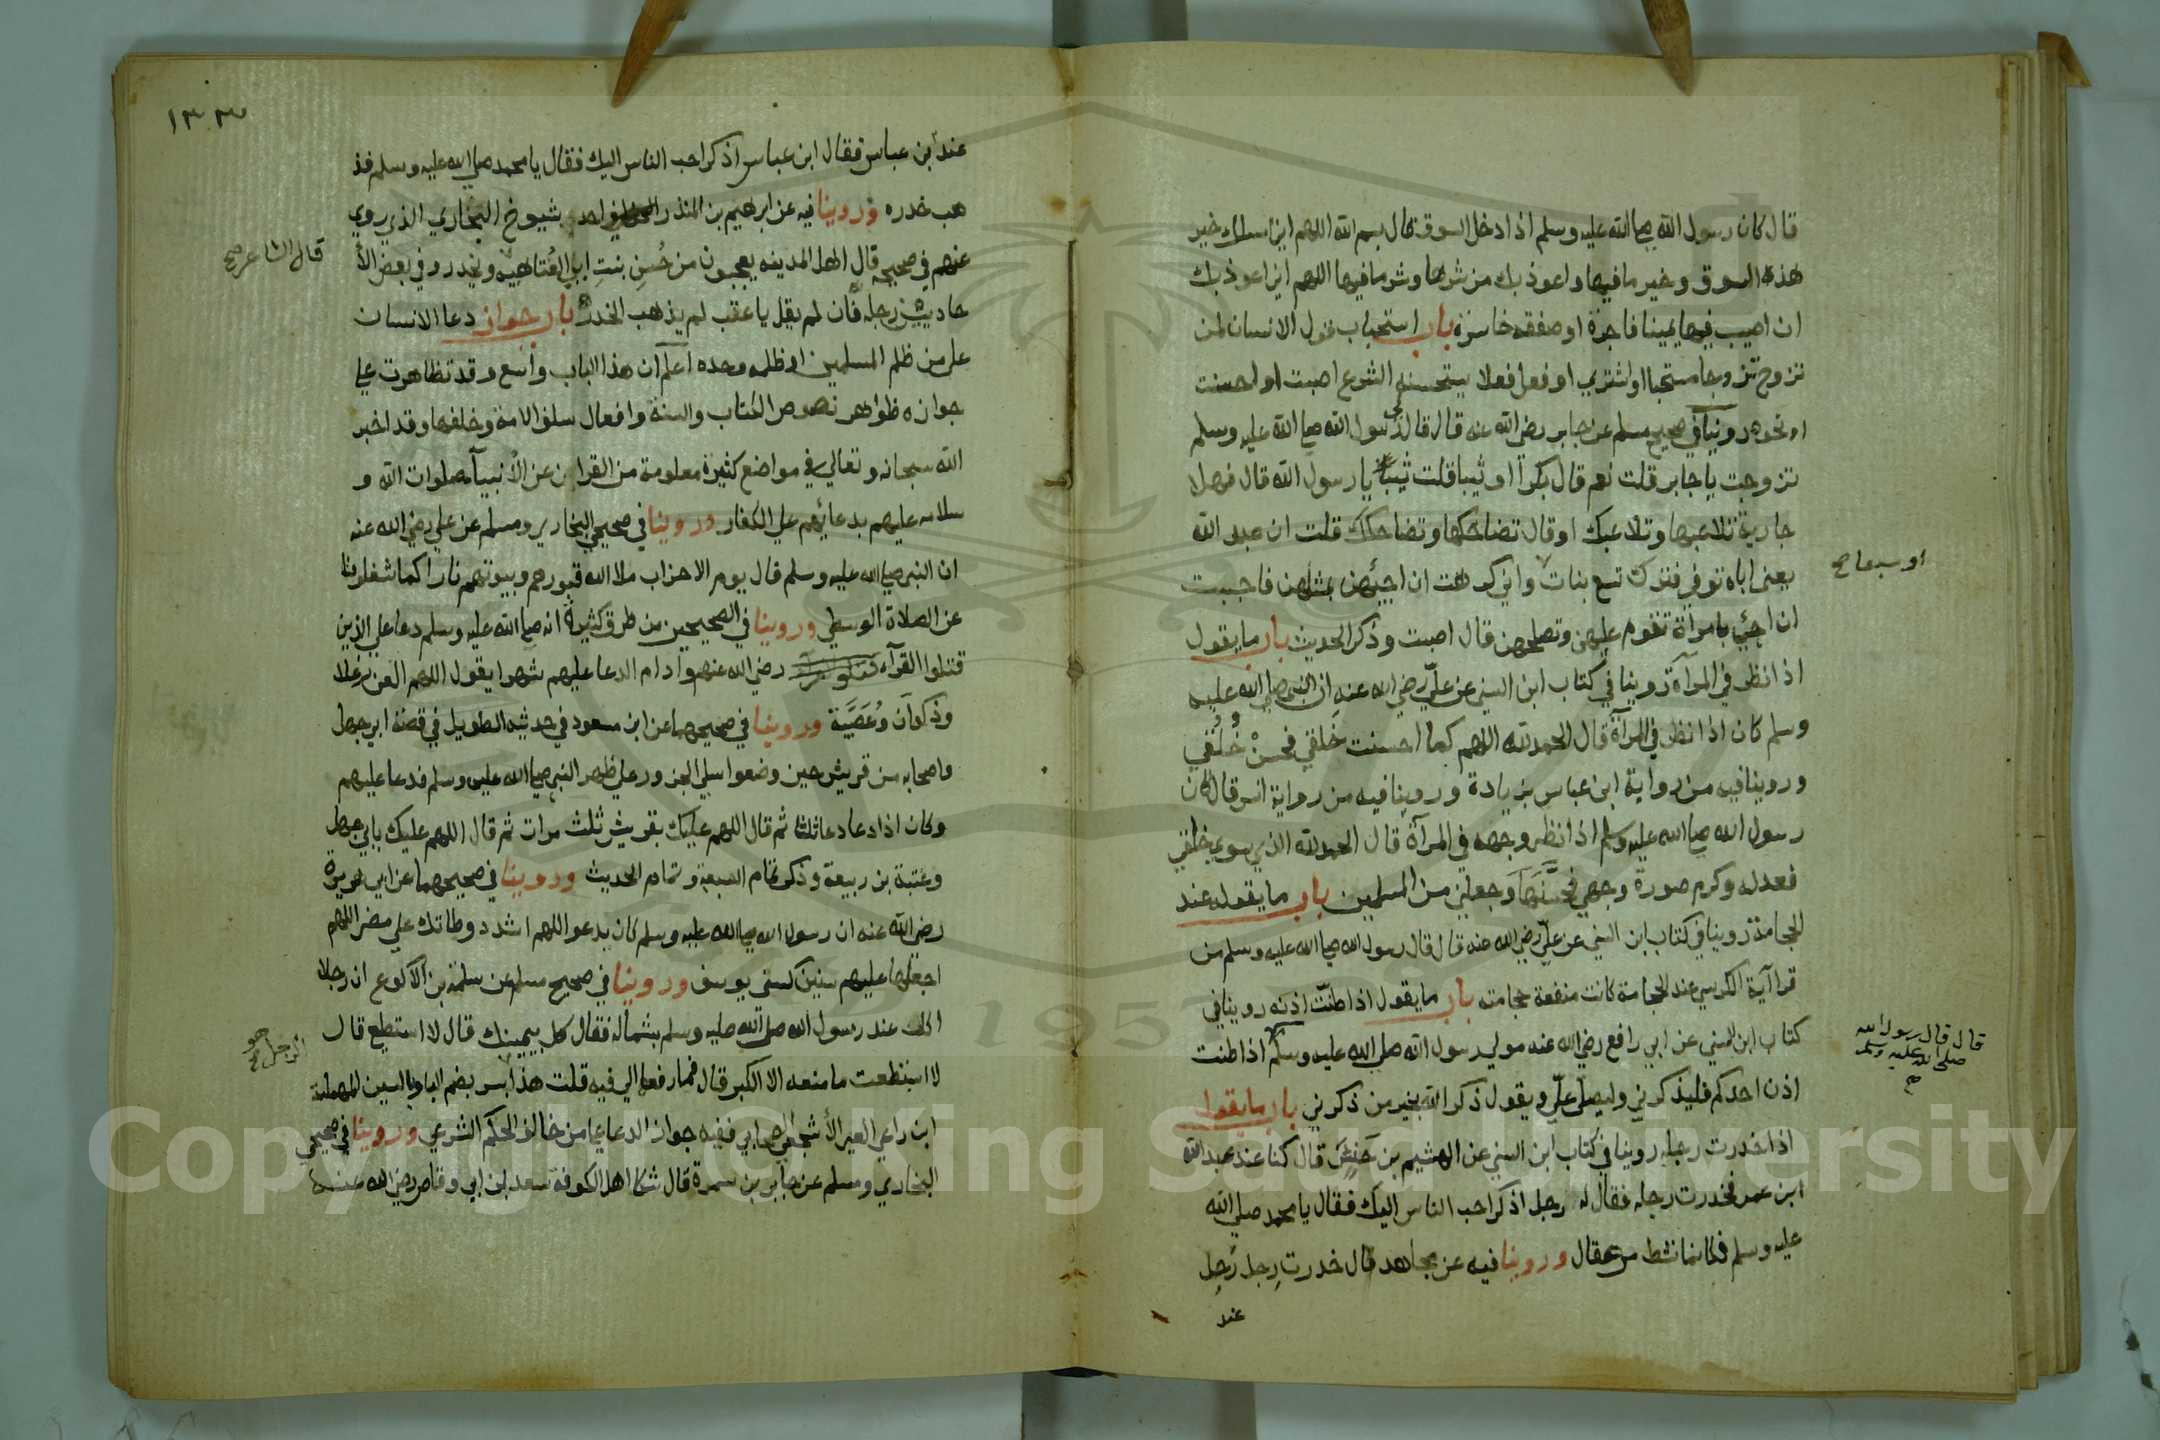 قال كان رسول الله صلى الله عليه وسلم اذا دخل السوق قال بسم الله اللهم اني اسالك خير
هذه السوق وخير ما فيها واعوذ بك من شرها وشر ما فيها اللهم اني اعوذ بك
ان اصيب فيها يمينا فاجرة او صفقه خاسرة باب استحباب قول الانسان لمن
تزوج تزوجا مستحبا او اشترى او فعل فعلا يستحسنه الشرع اصبت او احسنت
او نحوه روينا في صحيح مسلم عن جابر رضي الله عنه قال قال لي رسول الله صلى الله عليه وسلم
تزوجت يا جابر قلت نعم قال بكرا او ثيبا قلت ثيبا يا رسول الله قال فهلا
جارية تلاعبها وتلاعبك او قال تضاحكها وتضاحكك قلت ان عبد الله
يعني اباه توفي فترك تسع بنات واني كرهت ان اجيئهن بمثلهن فاحببت
او سبعا صح
ان اجئ بامرأة تقوم عليهن وتصلحهن قال اصبت وذكر الحديث باب ما يقول
اذا نظر في المرآة روينا في كتاب ابن السني عن علي رضي الله عنه ان النبي صلى الله عليه
وسلم كان اذا نظر في المرآة قال الحمد لله اللهم كما احسنت خَلقي فحسن خُلُقي
وروينا فيه من رواية ابن عباس بزيادة وروينا فيه من رواية انس قال كان
رسول الله صلى الله عليه وسلم اذا نظر وجهه في المرآة قال الحمد لله الذي سوى خلقي
فعدله وكرم صورة وجهي فحسَّنها وجعلني من المسلمين باب ما يقوله عند
الحجامة روينا في كتاب ابن السني عن علي رضي الله عنه قال قال رسول الله صلى الله عليه وسلم من
قرا آية الكرسي عند الحجامة كانت منفعة حجامته باب ما يقول اذا طنّت اذنه روينا في
كتاب ابن السني عن ابي رافع رضي الله عنه مولى رسول الله صلى الله عليه وسلم اذا طنت
قال قال رسول الله
صلى الله عليه وسلم
صح
اذن احدكم فليذكرني وليصل عليّ ويقول ذكر الله بخير من ذكرني باب ما يقول
اذا خدرت رجله روينا في كتاب ابن السني عن الهشيم بن حنش قال كنا عند عبد الله
ابن عمر فخدرت رجله فقال له رجل اذكر احب الناس اليك فقال يا محمد صلى الله
عليه وسلم فكانما نشط من عقال وروينا فيه عن مجاهد قال خدرت رِجل رَجل
عند
١٣٣
عند ابن عباس فقال ابن عباس اذكر احب الناس اليك فقال يا محمد صلى الله عليه وسلم فذ
هب خدره وروينا فيه عن ابرهيم بن المنذر شيوخ البخاري الذي روي
عنهم في صحيحه قال اهل المدينه يعجبون من حُسن بنتِ ابي العُتاهيه وتخدر في بعض الأ
قال الشاعر صح
حاديث رجله فان لم يقل يا عتب لم يذهب الخدر باب جواز دعا الانسان
على من ظلم المسلمين او ظلمه وحده اعلم ان هذا الباب واسع وقد تظاهرت على
جوازه ظواهر نصوص الكتاب والسنة وافعال سلف الامة وخلفها وقد اخبر
الله سبحانه وتعالى في مواضع كثيرة معلومة من القرآن عن الأنبيآ صلوات الله و
سلامه عليهم بدعائهم على الكفار وروينا في صحيحي البخاري ومسلم عن علي رضي الله عنه
ان النبي صلى الله عليه وسلم قال يوم الاحزاب ملا الله قبورهم وبيوتهم نارا كما شغلونا
عن الصلاة الوسطى وروينا في الصحيحين من طرق كثيرة انه صلى الله عليه وسلم دعا على الذين
قتلوا القرآء رضي الله عنهم وادام الدعا عليهم شهرا يقول اللهم العن رعلا
وذكوان وعُصَيَّة وروينا في صحيحهما عن ابن مسعود في حديثه الطويل في قصة ابي جهل
واصحابه من قريش حين وضعوا سلى الجزور على ظهر النبي صلى الله عليه وسلم فدعا عليهم
وكان اذا دعا دعا ثلثا ثم قال اللهم عليك بقريش ثلث مرات ثم قال اللهم عليك بابي جهل
وعتبة بن ربيعة وذكر تمام السبعة وتمام الحديث وروينا في صحيحهما عن ابي هريرة
رضي الله عنه ان رسول الله صلى الله عليه وسلم كان يدعو اللهم اشدد وطاتك على مضر اللهم
اجعلها عليهم سنين كسني يوسف وروينا في صحيح مسلم عن سلمة بن الاكوع ان رجلا
اكل عند رسول الله صلى الله عليه وسلم بشماله فقال كل بيمينك قال لا استطيع قال
لا استطعت ما منعه الا الكبر قال فما رفعها الى فيه قلت هذا بسر بضم البا وبالسين المهملة
الرجل هو صح
ابن راعي العير الأشجعي صحابي ففيه جواز الدعا على من خالف الحكم الشرعي وروينا في صحيحي
البخاري ومسلم عن جابر بن سمرة قال شكا اهل الكوفة سعد ابن ابي وقاص رضي الله عنه
Copyright © King Saud University
1957